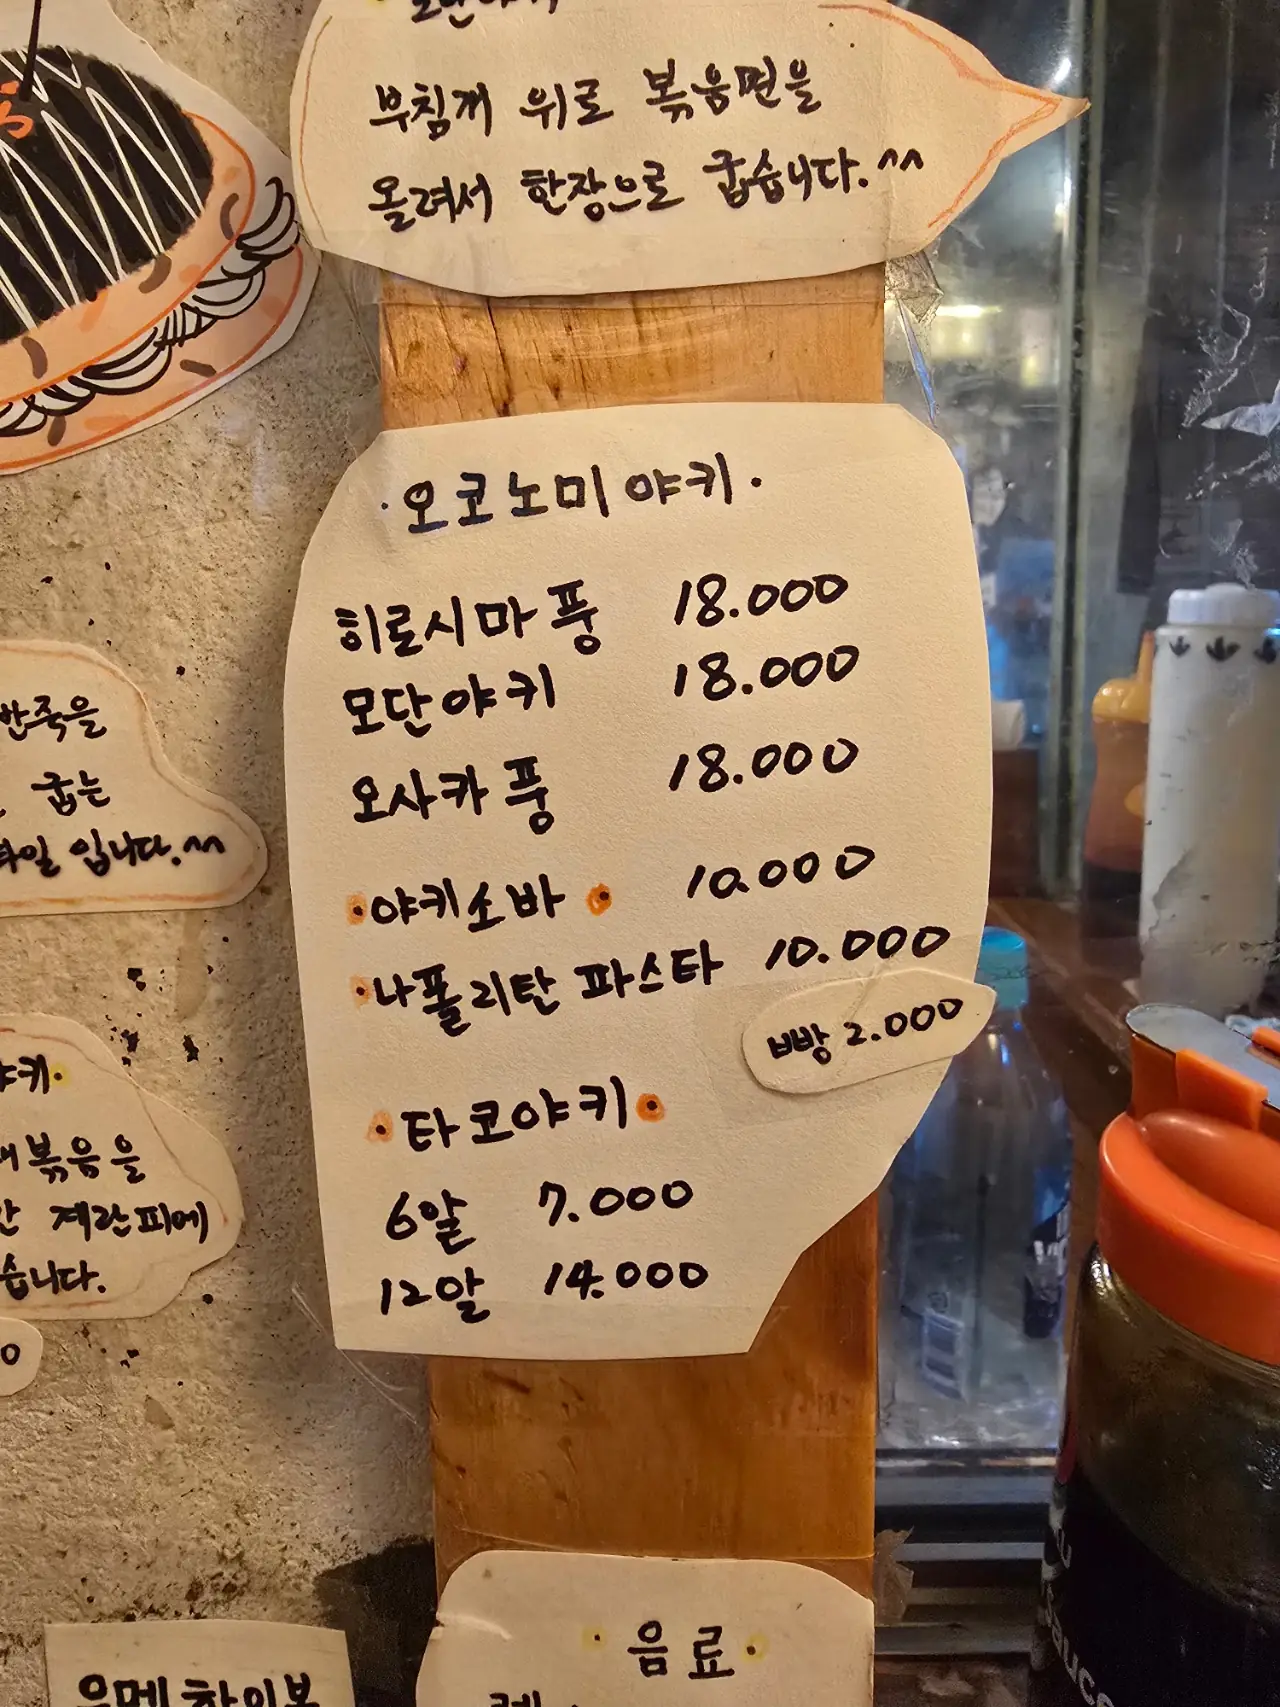 모단야키
부침개 위로 볶음면을
올려서 한장으로 굽습니다.^^
·오코노미야키·
히로시마풍 18.000
모단야키 18.000
오사카풍 18.000
·야키소바· 10.000
·나폴리탄 파스타 10.000
빵 2.000
·타코야키·
6알 7.000
12알 14.000
반죽을
굽는
타일 입니다.^^
야키·
볶음을
계란피에
습니다.
0
·음료·
우메하이볼